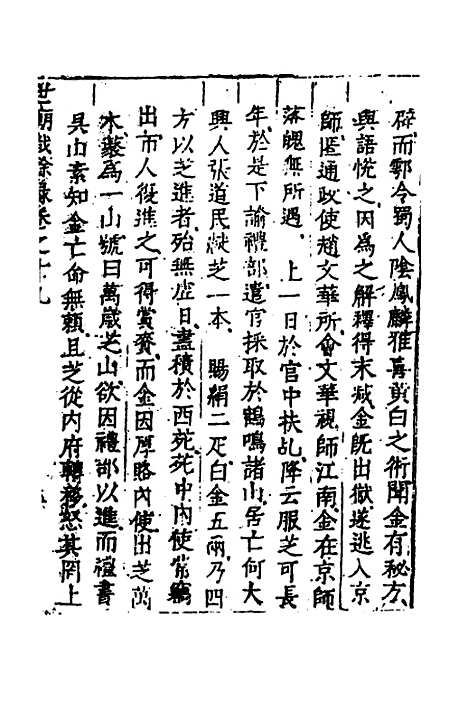 辟而鄠令蜀人陰鳳麟雅喜黃白之術聞金有秘方
與語悅之因為之解釋得末减金旣出獄遂逃入京
師匿通政使趙文華所會文華視師江南金在京師
落魄無所遇　上一日於宮中扶乩降云服芝可長
年於是下諭禮部遣官採取於鶴鳴諸山居亡何大
興人張道民献芝一本　賜絹二疋白金五兩乃四
方以芝進者殆無虛日盡積於西苑苑中內使常竊
出市人復進之可得賞賚而金因厚賂內使出芝萬
本藂為一山號曰萬歲芝山欲因禮部以進而禮書
具山素知金亡命無賴且芝從內府轉移怒其罔上
世廟識餘錄卷之十九